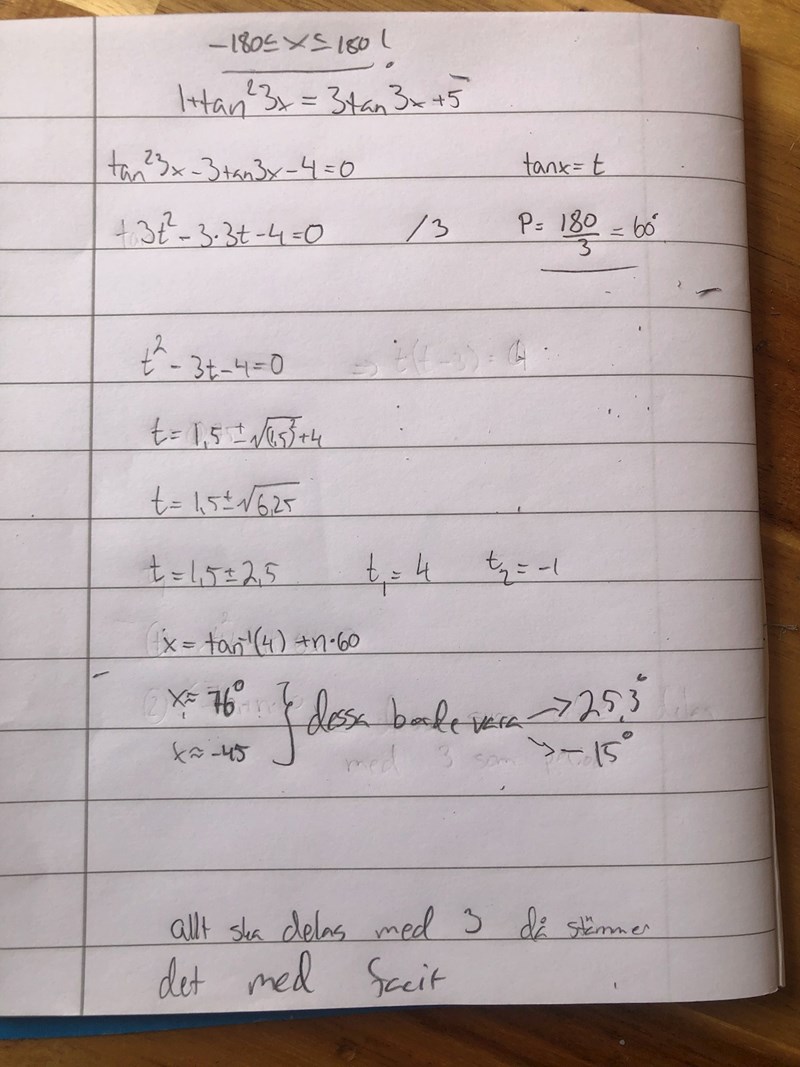 -180≤x≤180!
1+tan²3x = 3tan3x+5
tan²3x-3tan3x-4=0 tanx=t
3t²-3·3t-4=0 /3 P= 180/3 = 60°
t²-3t-4=0
t=1,5±√(1,5)²+4
t=1,5±√6,25
t=1,5±2,5 t₁=4 t₂=-1
x=tan⁻¹(4)+n·60
x≈76° } dessa borde vara → 25,3°
x≈-45 → -15°
allt ska delas med 3 då stämmer
det med facit